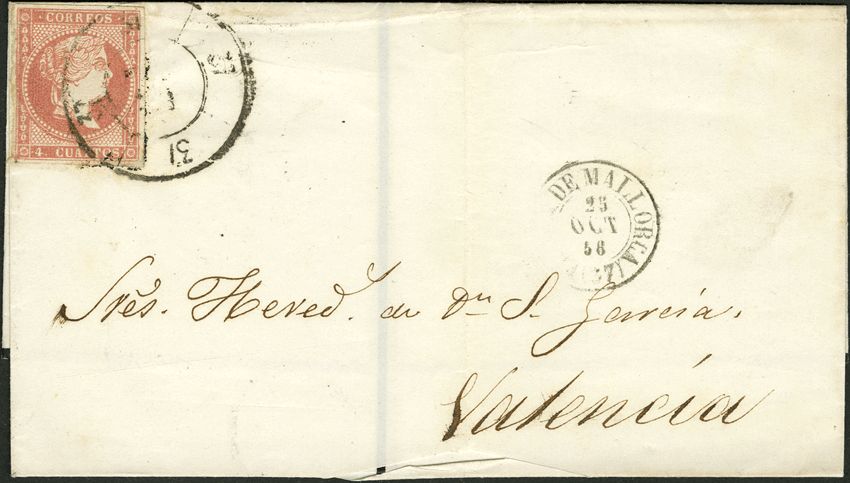 CORREOS
4. CUARTOS
31
DE MALLORCA
25
OCT
56
Srēs. Hered. de Dn S. García.
Valencia